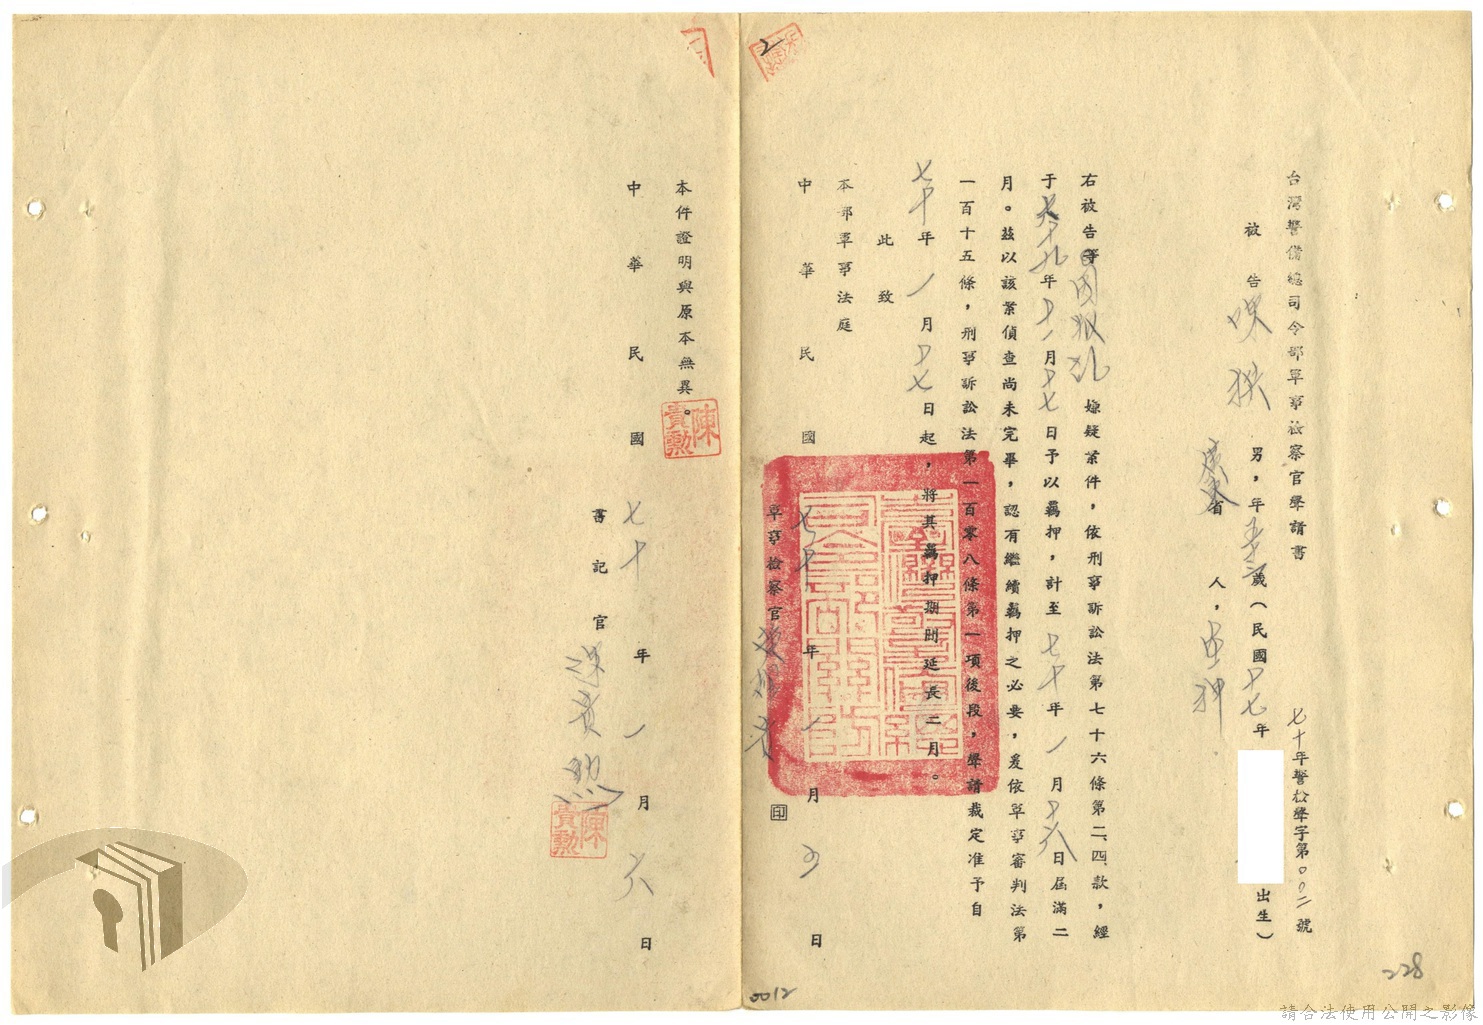 台灣警備總司令部軍事檢察官聲請書
七十年警松聲字第〇〇二號
被告 男，年五十三歲（民國十七年 出生）
廣東省 人，
右被告等因叛乱嫌疑案件，依刑事訴訟法第七十六條第二、四款，經
于六十九年十一月十七日予以羈押，計至七十年一月十六日屆滿二
月。茲以該案偵查尚未完畢，認有繼續羈押之必要，爰依軍事審判法第
一百十五條，刑事訴訟法第一百零八條第一項後段，聲請裁定准予自
七十年一月十七日起，將其羈押期間延長二月。
此致
本部軍事法庭
中華民國七十年一月 日
軍事檢察官 印
本件證明與原本無異。
陳貴勳
中華民國七十年一月六日
書記官 陳貴勳
陳貴勳
2
0012
228
請合法使用公開之影像